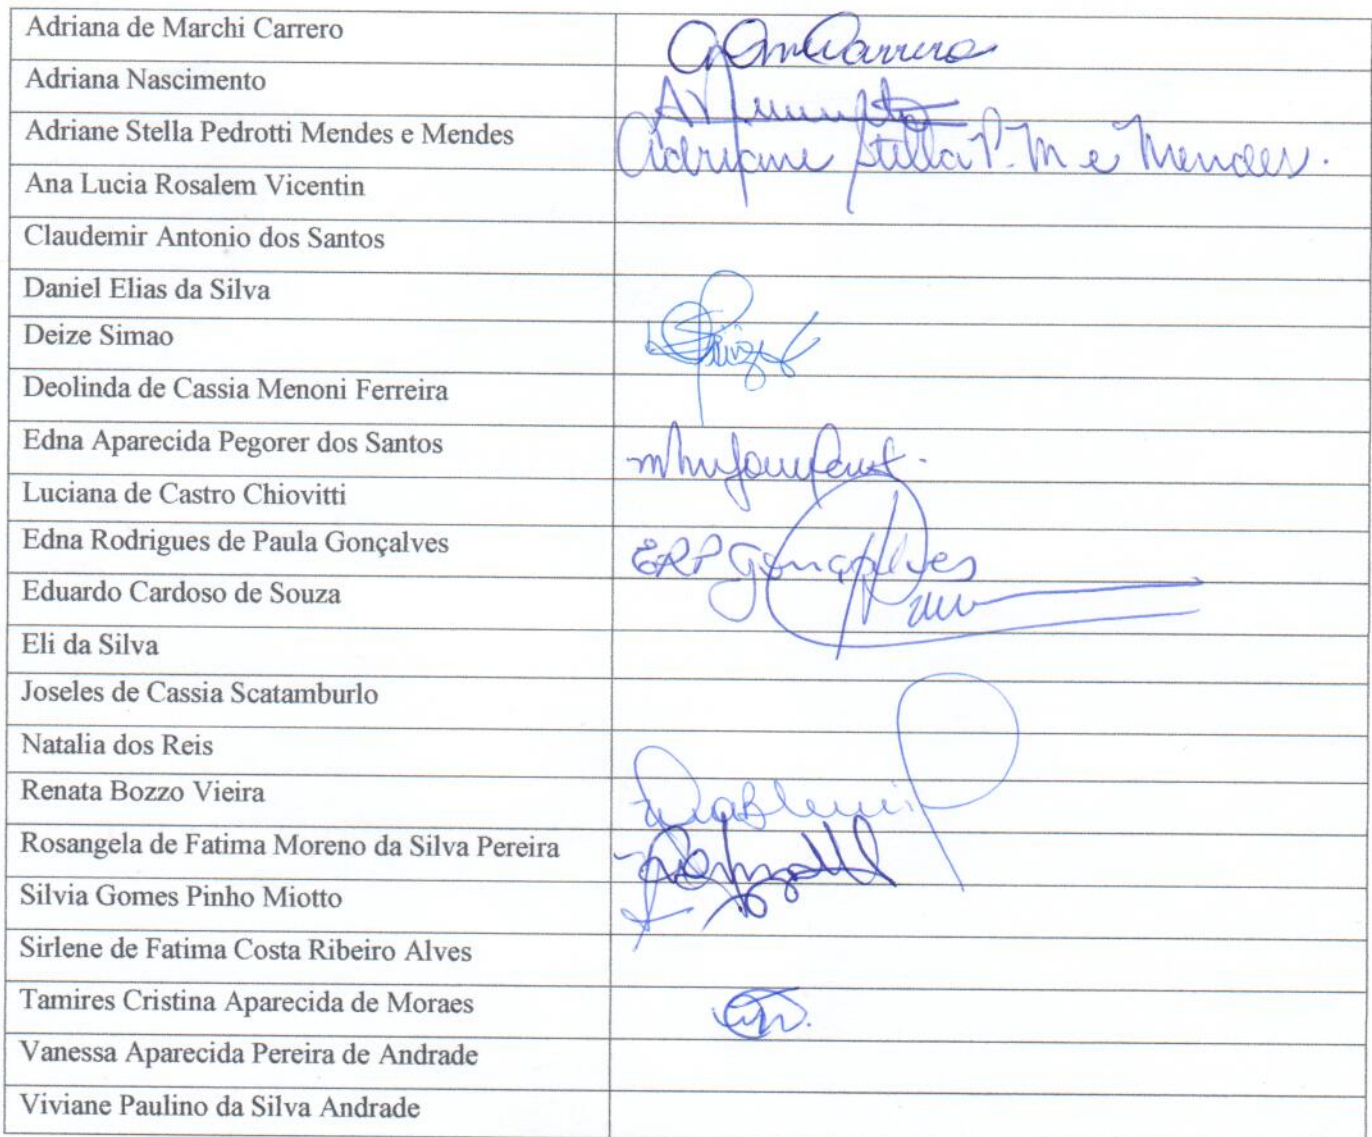 Adriana de Marchi Carrero
Adriana Nascimento
Adriane Stella Pedrotti Mendes e Mendes Adriane Stella P. M e Mendes.
Ana Lucia Rosalem Vicentin
Claudemir Antonio dos Santos
Daniel Elias da Silva
Deize Simao
Deolinda de Cassia Menoni Ferreira
Edna Aparecida Pegorer dos Santos
Luciana de Castro Chiovitti
Edna Rodrigues de Paula Gonçalves ERP Gonçalves
Eduardo Cardoso de Souza
Eli da Silva
Joseles de Cassia Scatamburlo
Natalia dos Reis
Renata Bozzo Vieira
Rosangela de Fatima Moreno da Silva Pereira
Silvia Gomes Pinho Miotto
Sirlene de Fatima Costa Ribeiro Alves
Tamires Cristina Aparecida de Moraes
Vanessa Aparecida Pereira de Andrade
Viviane Paulino da Silva Andrade